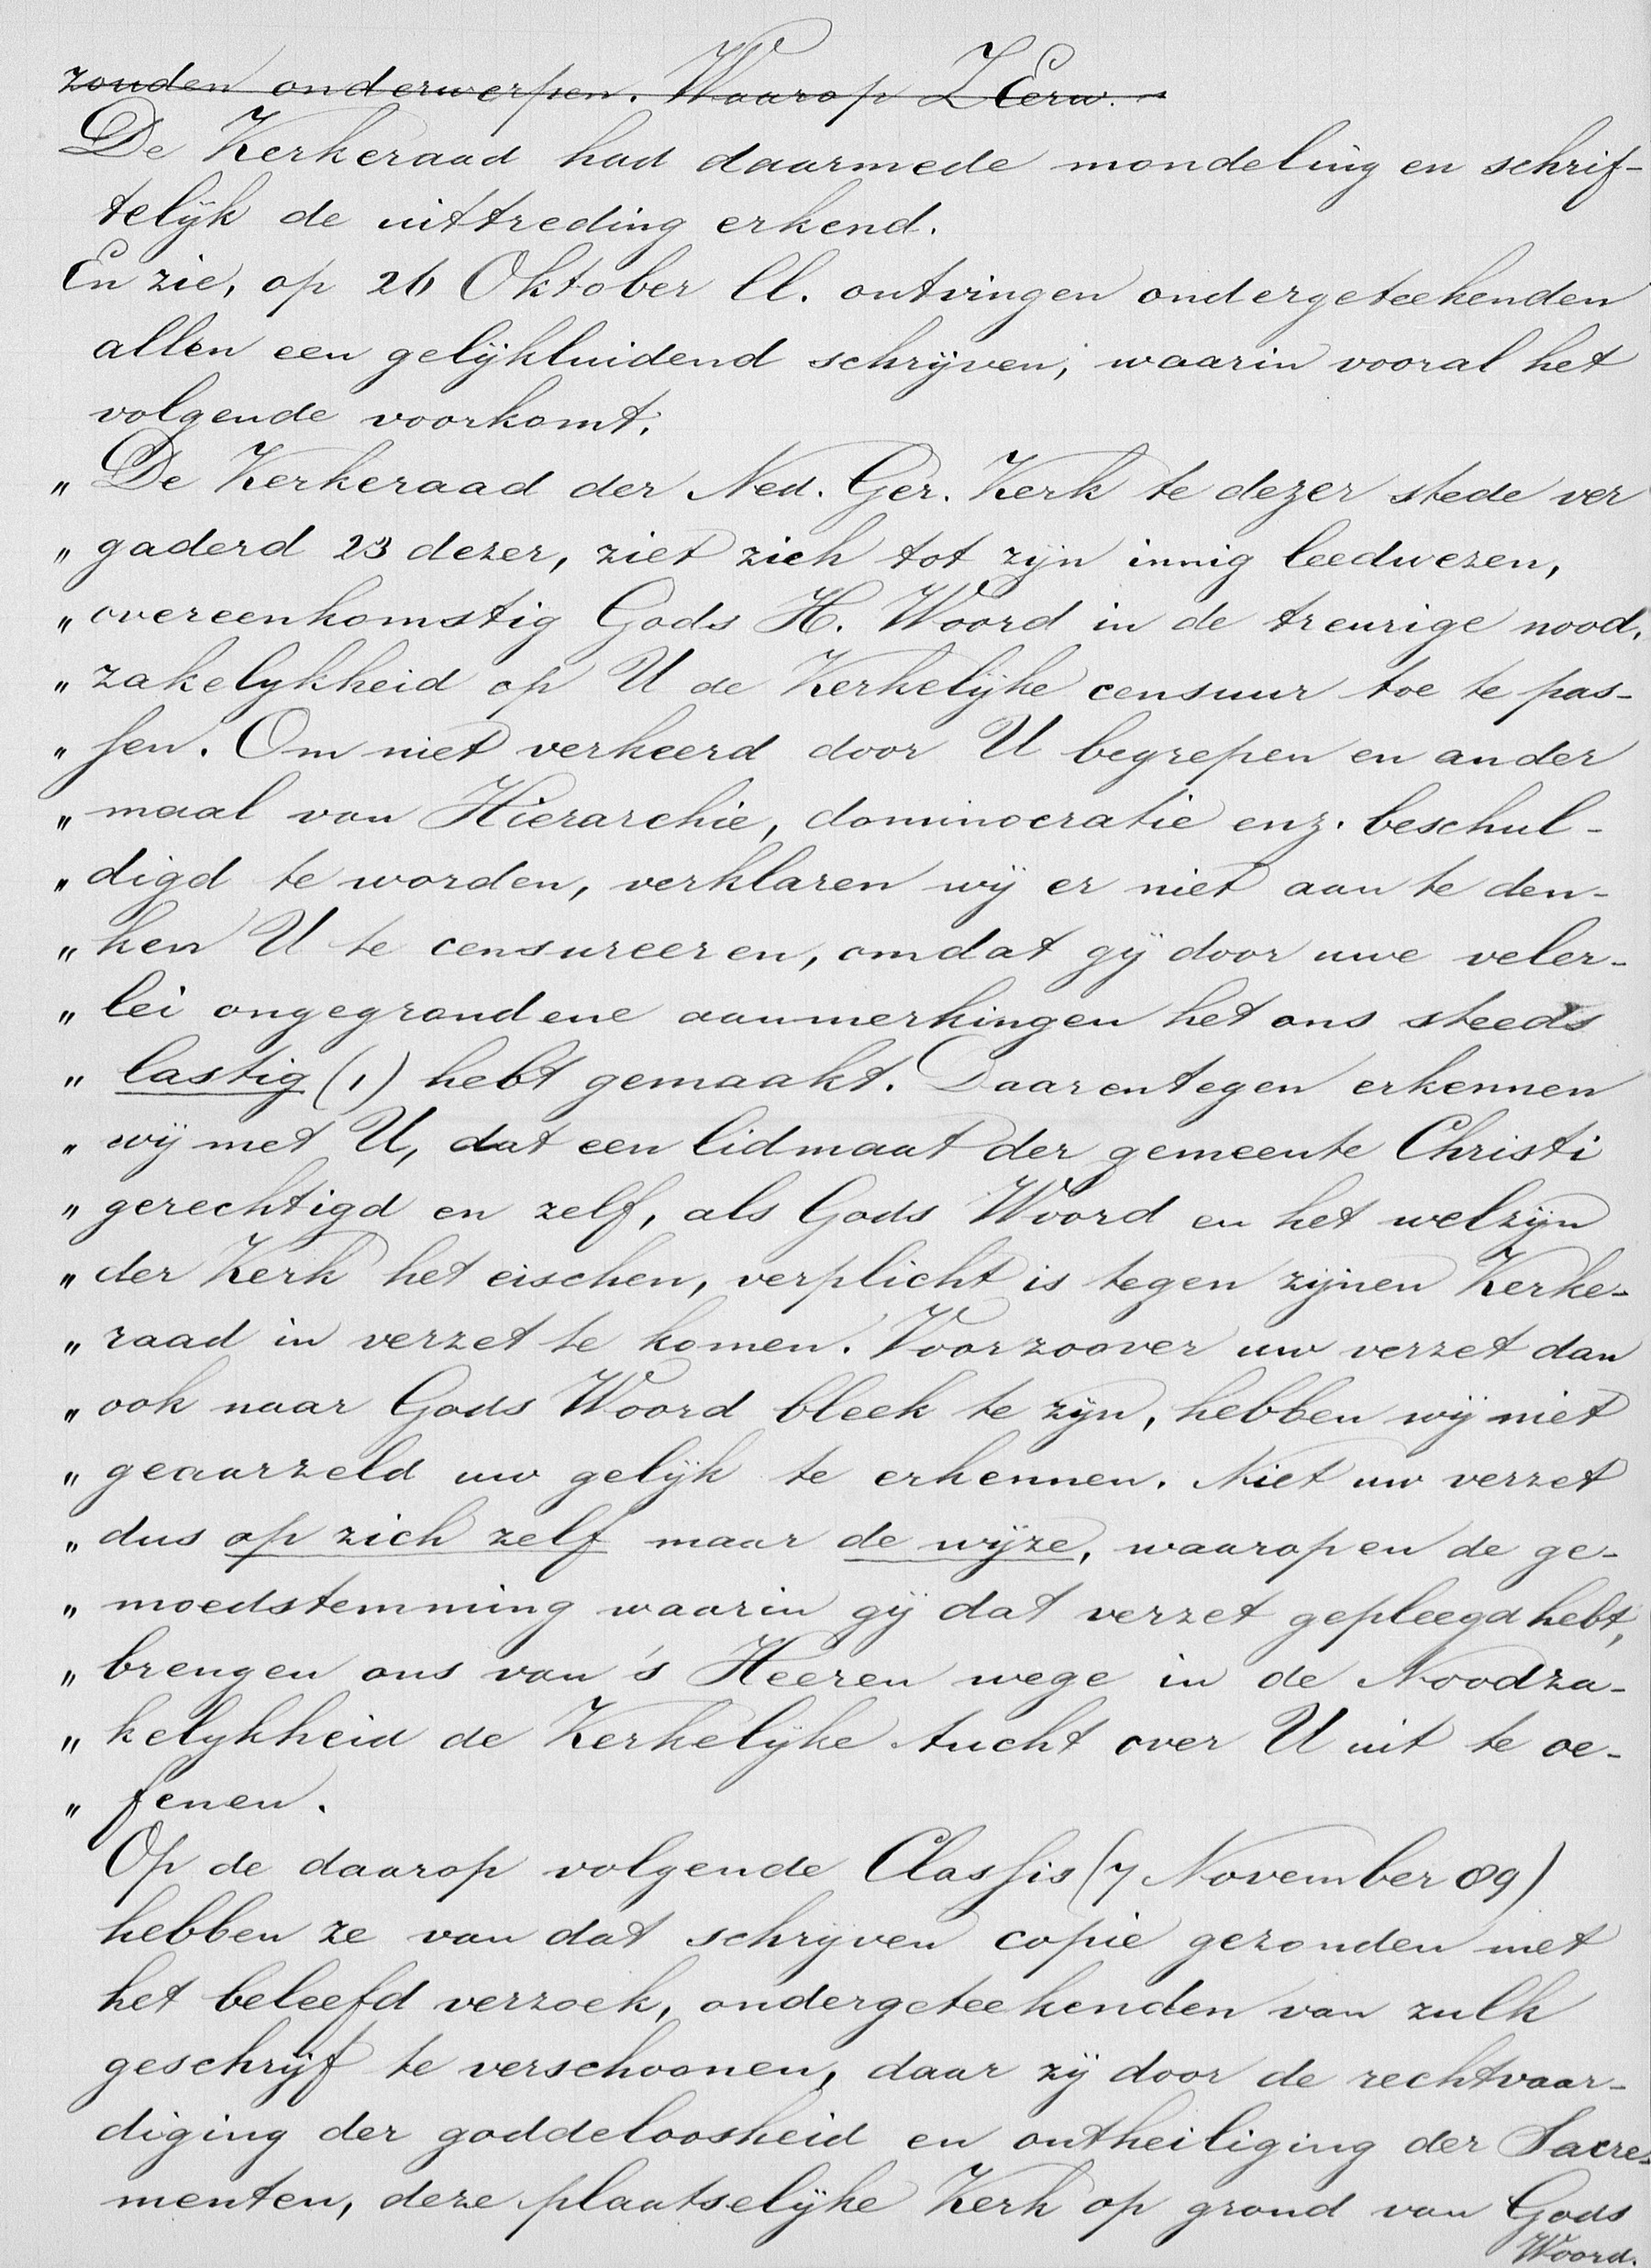 zouden onderwerpen. Waarop ZEerw.
De Kerkeraad had daarmede mondeling en schrif-
telijk de uittreding erkend.
En zie, op 26 Oktober ll. ontvingen ondergeteekenden
allen een gelijkluidend schrijven, waarin vooral het
volgende voorkomt:
„ De Kerkeraad der Ned. Ger. Kerk te dezer stede ver
„ gaderd 23 dezer, ziet zich tot zijn innig leedwezen,
„ overeenkomstig Gods H. Woord in de treurige nood,
„ zakelykheid op U de Kerkelijke censuur toe te pas-
„ sen. Om niet verkeerd door U begrepen en ander
„ maal van Hierarchie, dominocratie enz. beschul-
„ digd te worden, verklaren wij er niet aan te den-
„ ken U te censureeren, omdat gij door uwe veler-
„ lei ongegrondene aanmerkingen het ons steeds
„ lastig (1) hebt gemaakt. Daarentegen erkennen
„ wij met U, dat een lidmaat der gemeente Christi
„ gerechtigd en zelf, als Gods Woord en het welzijn
„ der Kerk het eischen, verplicht is tegen zijnen Kerke-
„ raad in verzet te komen. Voorzoover uw verzet dan
„ ook naar Gods Woord bleek te zijn, hebben wij niet
„ geaarzeld uw gelijk te erkennen. Niet uw verzet
„ dus op zich zelf maar de wijze, waarop en de ge-
„ moedstemming waarin gij dat verzet gepleegd hebt,
„ brengen ons van 's Heeren wege in de Noodza-
„ kelykheid de Kerkelijke tucht over U uit te oe-
„ fenen.
Op de daarop volgende Classis (7 November 89)
hebben ze van dat schrijven copie gezonden met
het beleefd verzoek, ondergeteekenden van zulk
geschrijf te verschoonen, daar zij door de rechtvaar-
diging der goddeloosheid en ontheiliging der Sacre-
menten, deze plaatselijke Kerk op grond van Gods
Woord.